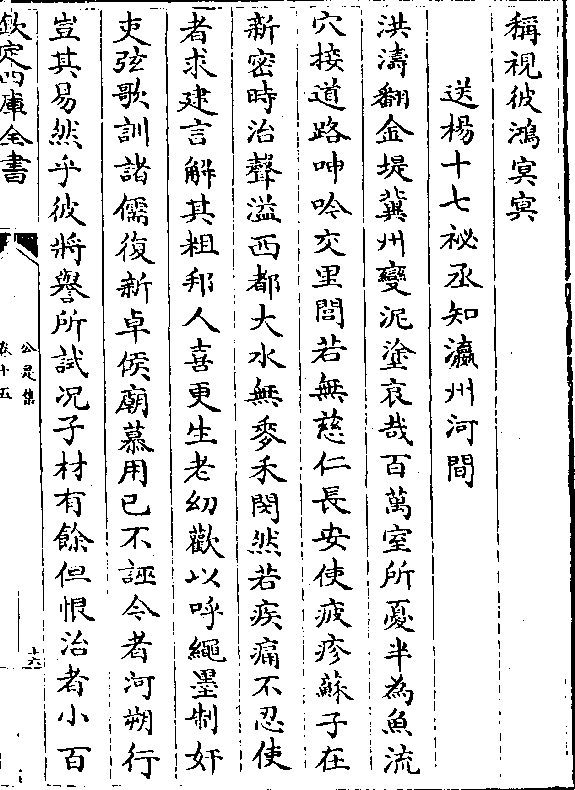 稱視彼鴻冥冥
送楊十七祕丞知瀛州河間
洪濤翻金堤冀州變泥塗哀哉百萬室所憂半為魚流
穴接道路呻吟交里閭若無慈仁長安使疲疹蘇子在
新密時治聲溢西都大水無麥禾閔然若疾痛不忍使
者求建言解其粗邦人喜更生老幼歡以呼繩墨制奸
吏弦歌訓諸儒復新卓侯廟慕用已不誣今者河朔行
豈其易然乎彼將譽所試况子材有餘但恨治者小百
欽定四庫全書
公是集
卷十五
十六